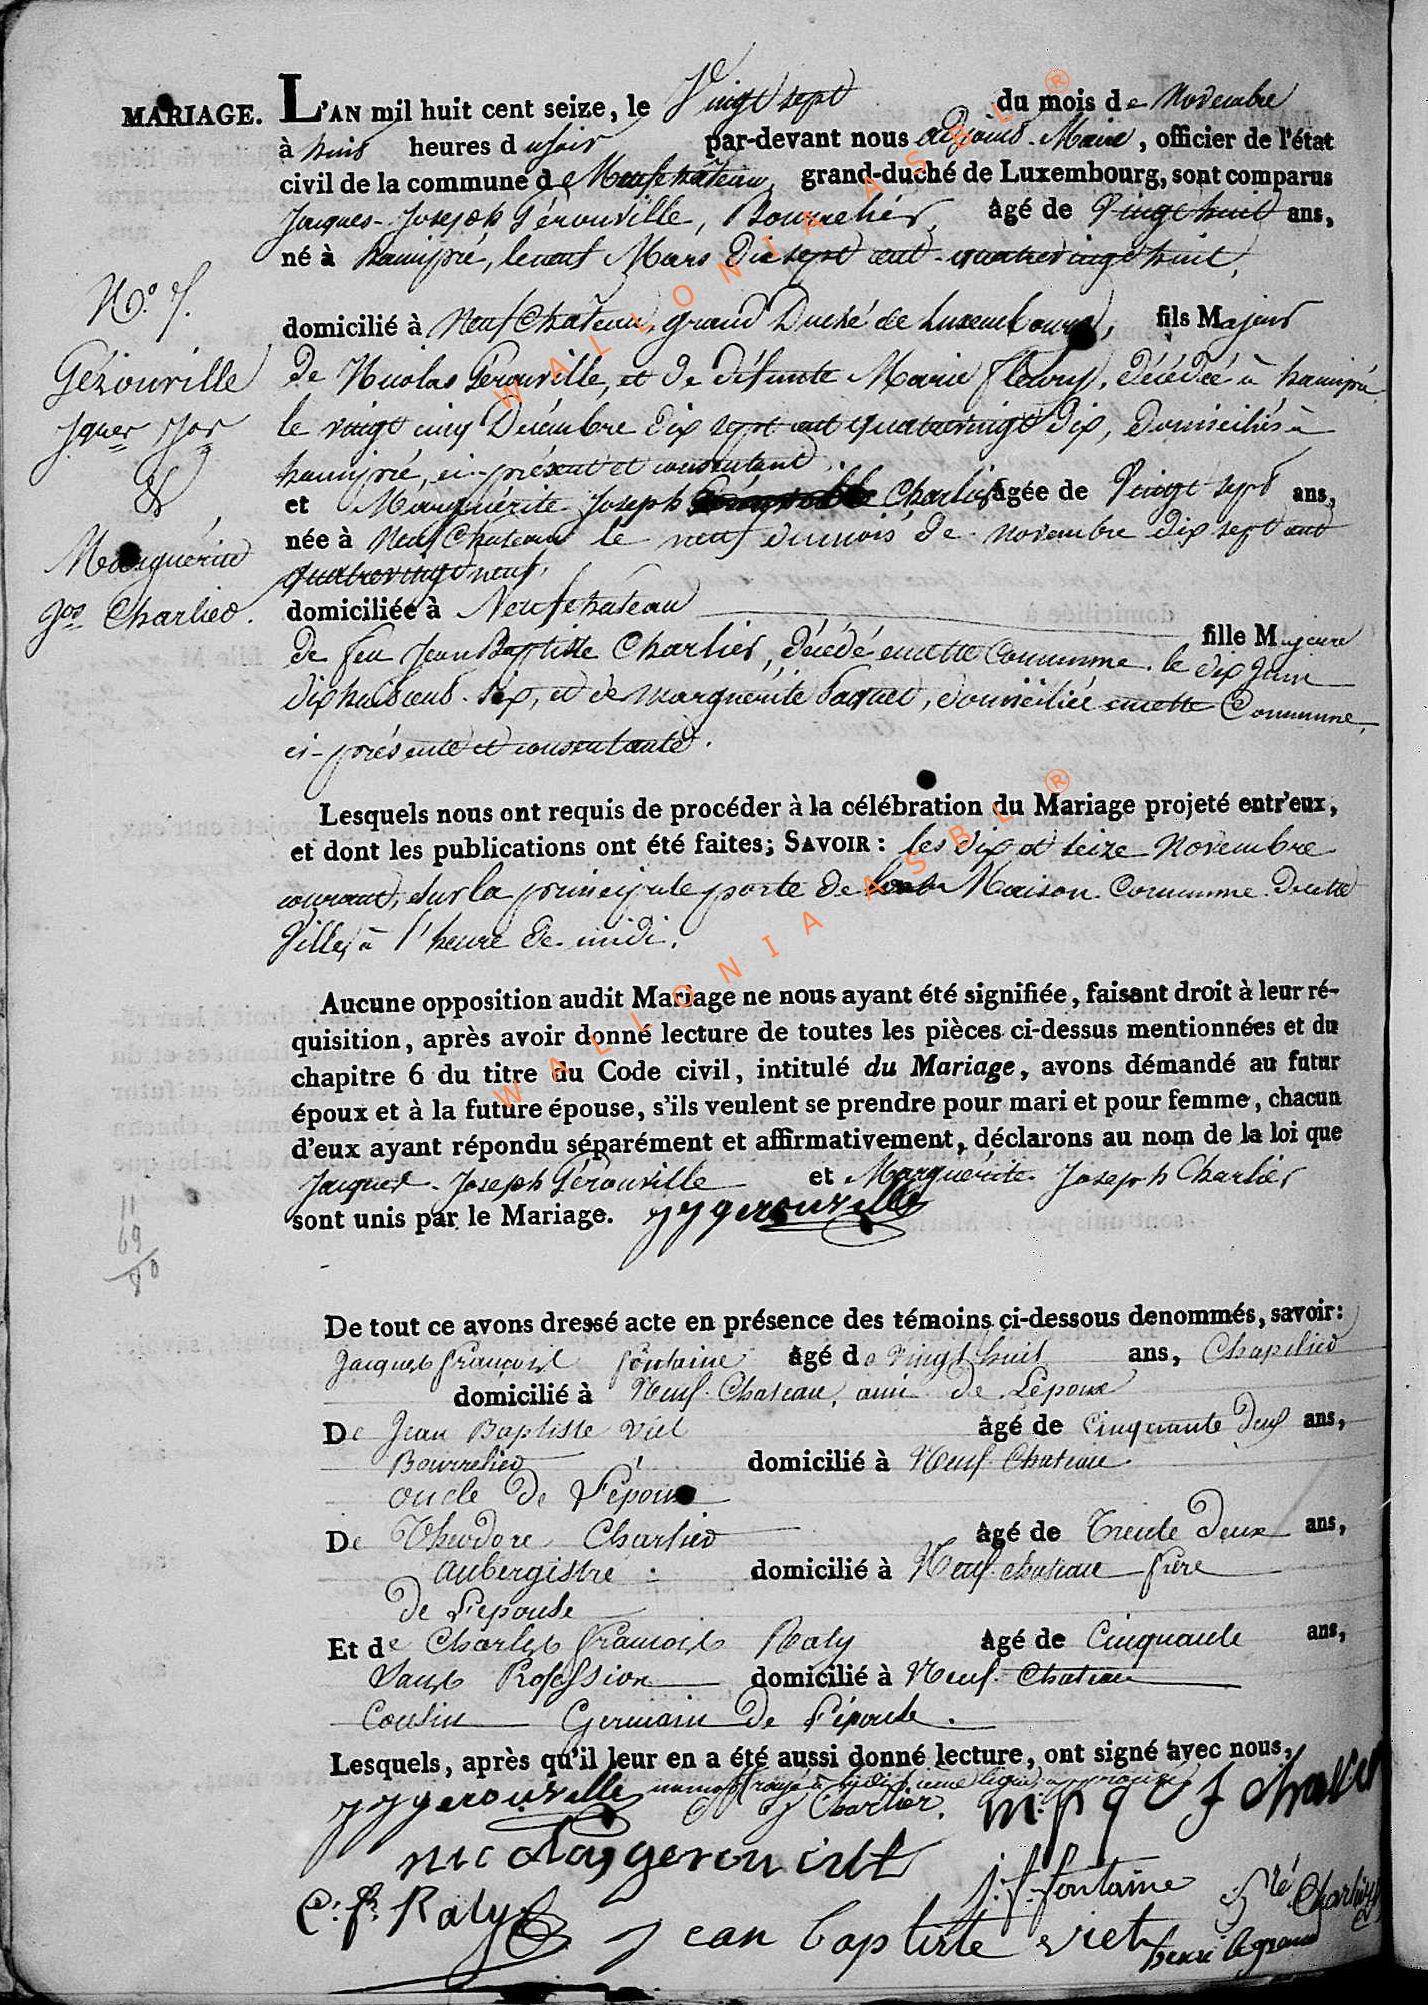 MARIAGE. L'AN mil huit cent seize, le Vingt sept du mois de Novembre
à huit heures du soir par-devant nous adjoint-Maire, officier de l'état
civil de la commune de Neufchâteau, grand-duché de Luxembourg, sont comparus
Jacques-Joseph Gérouville, Bourrelier, âgé de Vingt huit ans,
né à hamipré, le neuf Mars Dix sept cent quatrevingt huit,
N.º 7.
domicilié à Neufchâteau, grand Duché de Luxembourg, fils Majeur
Gérouville
de Nicolas Gérouville, et de défunte Marie fleury, décédée à hamipré
Jques Jph
le vingt cinq Décembre dix sept cent quatrevingt dix, domiciliés à
hamipré, ci-présent et consentant.
&
et Marguérite Joseph Charlier âgée de Vingt sept ans,
née à Neufchateau le neuf du mois de novembre dix sept cent
Marguérite
quatrevingt neuf,
Jos Charlier.
domiciliée à Neufchateau
fille Majeure
de feu Jean Baptiste Charlier, décédé en cette Commune le dix Juin
dix huit cent six, et de Marguérite Paquet, domiciliée en cette Commune,
ci-présente et consentante.
Lesquels nous ont requis de procéder à la célébration du Mariage projeté entr'eux,
et dont les publications ont été faites; SAVOIR: les dix et seize Novembre
courant, sur la principale porte de Maison Commune de cette
Ville, à l'heure de midi.
Aucune opposition audit Mariage ne nous ayant été signifiée, faisant droit à leur ré-
quisition, après avoir donné lecture de toutes les pièces ci-dessus mentionnées et du
chapitre 6 du titre du Code civil, intitulé du Mariage, avons démandé au futur
époux et à la future épouse, s'ils veulent se prendre pour mari et pour femme, chacun
d'eux ayant répondu séparément et affirmativement, déclarons au nom de la loi que
Jacques-Joseph Gérouville et Marguérite Joseph Charlier
sont unis par le Mariage. JJgerouville
11
69
80
De tout ce avons dressé acte en présence des témoins ci-dessous denommés, savoir:
Jacques françois fontaine âgé de vingt huit ans, Chapelier
domicilié à Neuf-Chateau, ami de L'époux
De Jean Baptiste Viet âgé de Cinquante deux ans,
Bourrelier domicilié à Neuf Chateau
oncle de L'époux
De Théodore Charlier âgé de Trente deux ans,
Aubergiste domicilié à Neuf-chateau frère
de L'epouse
Et de Charles françois Raty âgé de Cinquante ans,
Sans Profession domicilié à Neuf-Chateau
Cousin Germain de L'épouse.
Lesquels, après qu'il leur en a été aussi donné lecture, ont signé avec nous,
JJgerouville
J Charlier. m: p
nicolas gerouville
j. f. fontaine
C: F: Raty
Charlier
jean baptiste viet
henri legrand
WALLONIA ASBL ®
WALLONIA ASBL ®